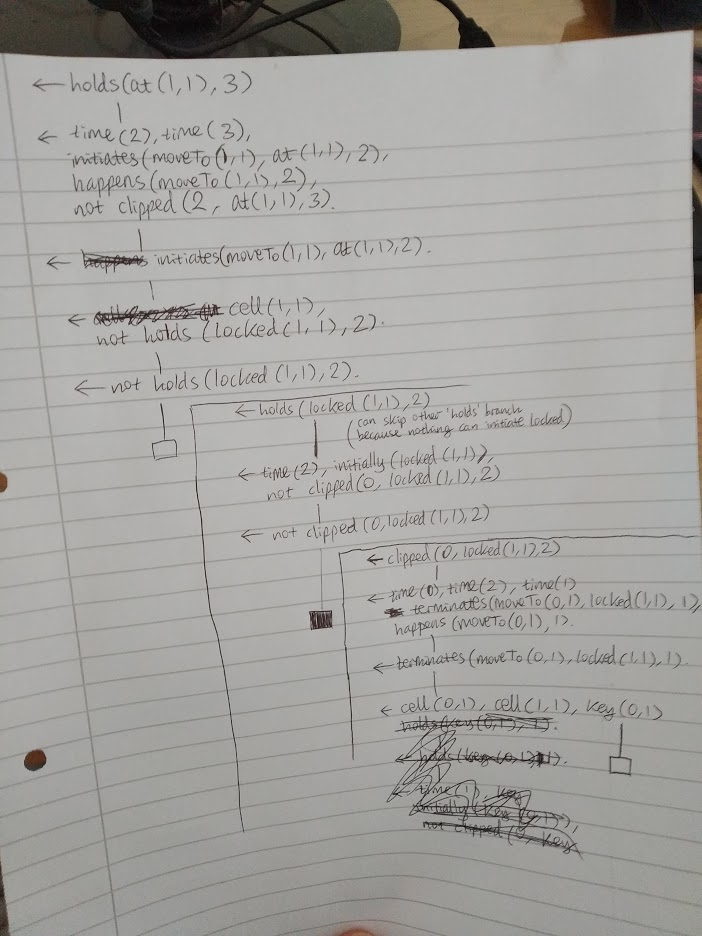 ← holds(at(1,1), 3)
← time(2), time(3),
initiates(moveTo(1,1), at(1,1), 2),
happens(moveTo(1,1), 2),
not clipped(2, at(1,1), 3).
← happens initiates(moveTo(1,1), at(1,1), 2).
← cell(1,1),
not holds(locked(1,1), 2).
← not holds(locked(1,1), 2).
← holds(locked(1,1), 2)
(can skip other 'holds' branch
because nothing can initiate locked)
← time(2), initially(locked(1,1)),
not clipped(0, locked(1,1), 2)
← not clipped(0, locked(1,1), 2)
← clipped(0, locked(1,1), 2)
← time(0), time(2), time(1)
terminates(moveTo(0,1), locked(1,1), 1),
happens(moveTo(0,1), 1).
← terminates(moveTo(0,1), locked(1,1), 1).
← cell(0,1), cell(1,1), key(0,1)
holds(key(0,1), 1).
← holds(key(0,1), 1).
← time(1), key
initially(key(0,1)),
not clipped(0, key